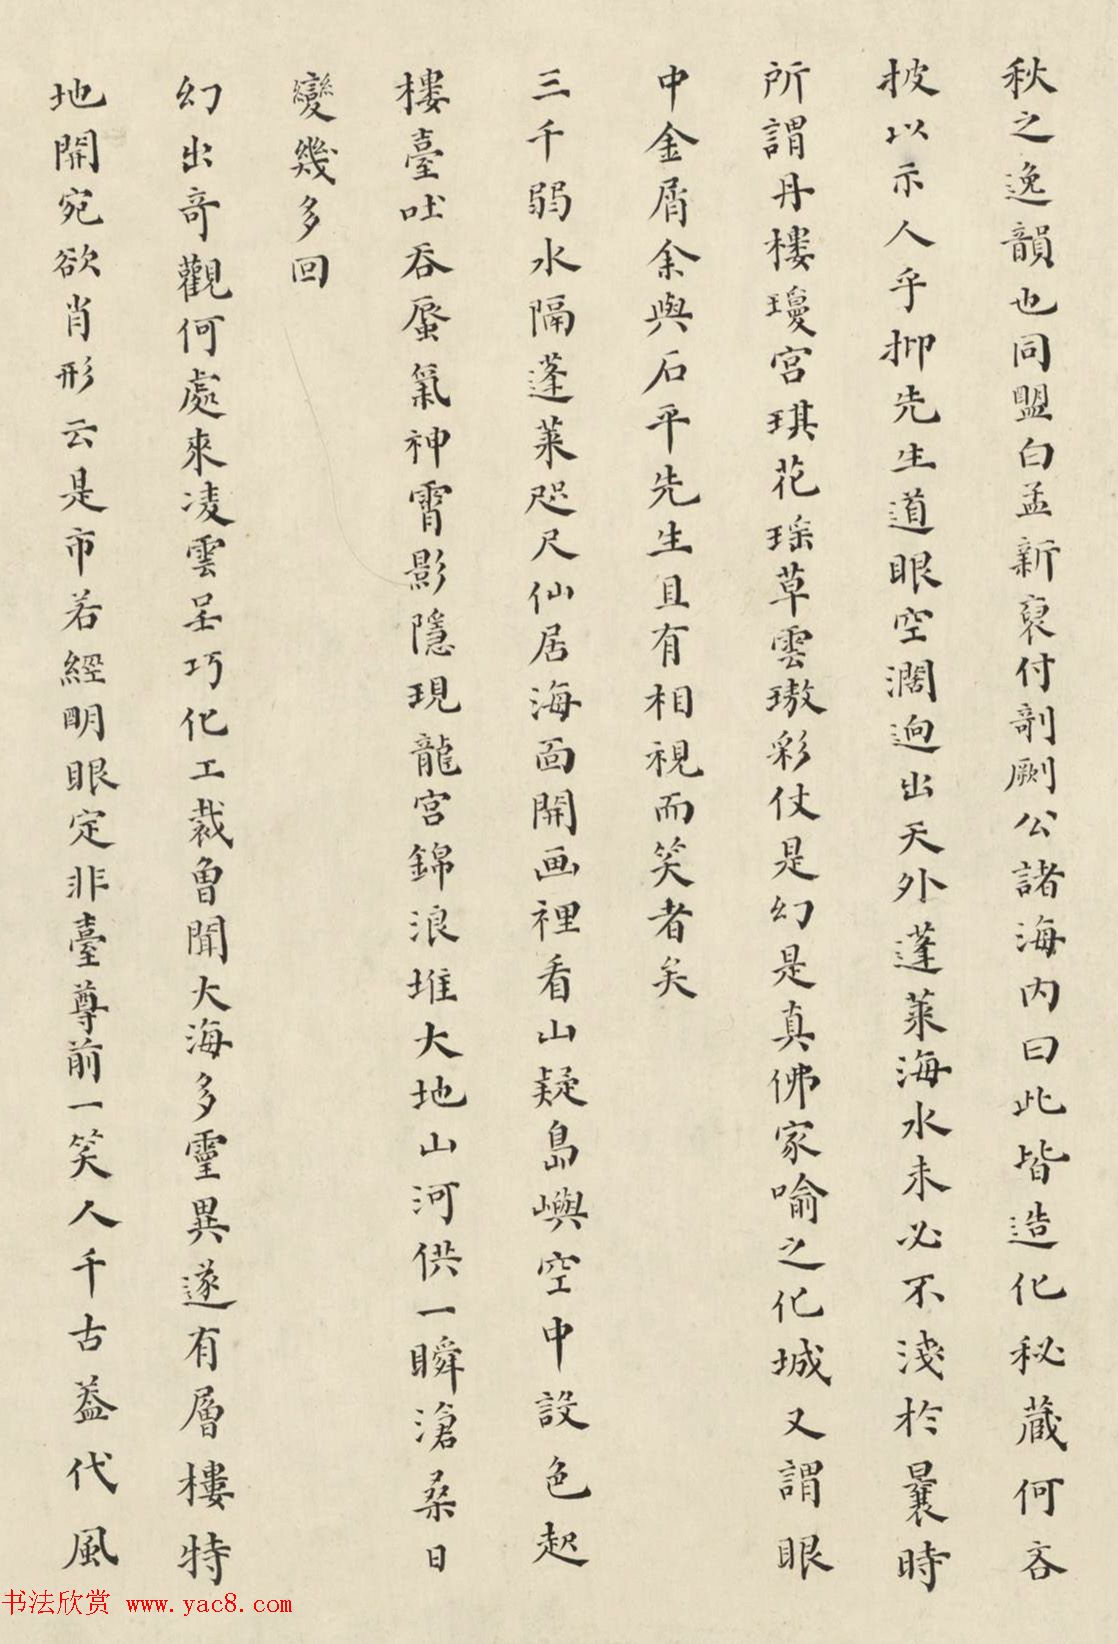 秋之逸韻也同盟白孟新裒付剞劂公諸海內曰此皆造化秘蔵何吝
披以示人乎抑先生道眼空濶逈出天外蓬萊海水未必不淺於曩時
所謂丹樓瓊宮琪花瑶草雲璈彩仗是幻是真佛家喻之化城又謂眼
中金屑余與石平先生且有相視而笑者矣
三千弱水隔蓬萊咫尺仙居海面開画裡看山疑島嶼空中設色起
樓臺吐吞蜃氣神霄影隱現龍宮錦浪堆大地山河供一瞬滄桑日
變幾多回
幻出奇觀何處來凌雲呈巧化工裁曾聞大海多靈異遂有層樓特
地開宛欲肖形云是市若經明眼定非臺尊前一笑人千古蓋代風
书法欣赏 www.yac8.com